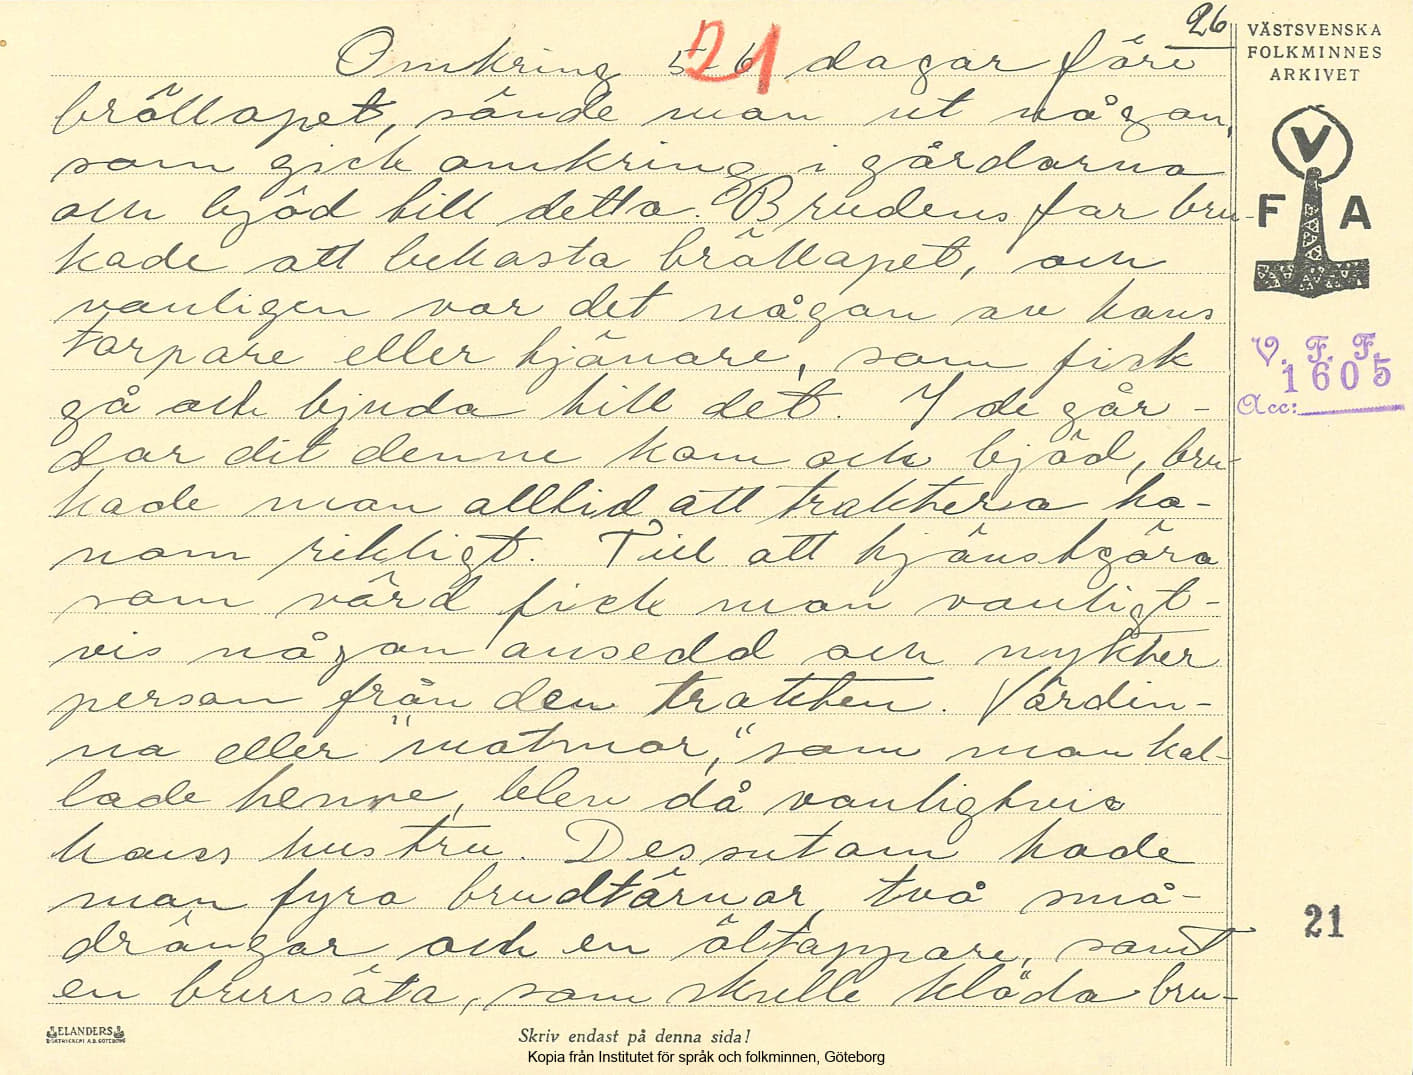 26
VÄSTSVENSKA
FOLKMINNES
ARKIVET
21
Omkring 5-6 dagar före
bröllopet, sände man ut någon,
som gick omkring i gårdarna
och bjöd till detta. Brudens far bru-
kade att bekosta bröllopet, och
vanligen var det någon av hans
torpare eller tjänare, som fick
gå och bjuda till det. I de går-
dar dit denne kom och bjöd, bru-
kade man alltid att traktera ho-
nom rikligt. Till att tjänstgöra
som värd fick man vanligt-
vis någon ansedd och nykter
person från den trakten. Värdin-
na eller "matmor," som man kal-
lade henne, blev då vanligtvis
hans hustru. Dessutom hade
man fyra brudtärnor, två små-
drängar och en öltappare, samt
en brursäta, som skulle kläda bru-
V
F A
V. F. F.
1605
Acc:
21
ELANDERS
BOKTRYCKERI A.B. GÖTEBORG
Skriv endast på denna sida!
Kopia från Institutet för språk och folkminnen, Göteborg